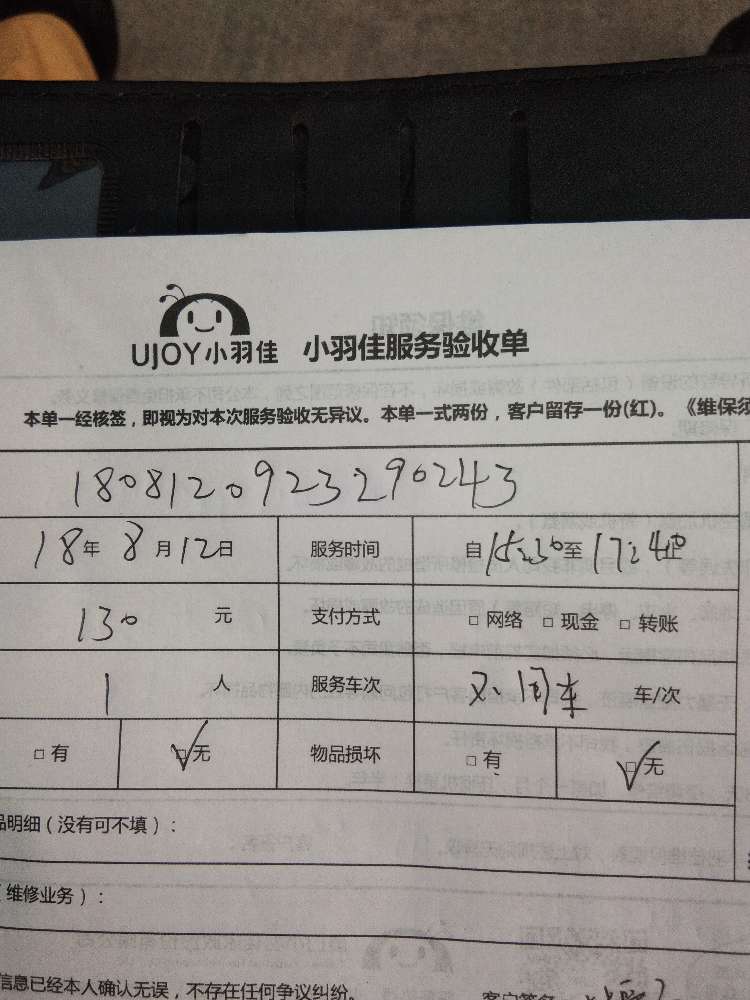 UJOY小羽佳 小羽佳服务验收单
本单一经核签，即视为对本次服务验收无异议。本单一式两份，客户留存一份(红)。《维保须
180812092329０243
18年 8月12日 服务时间 自15:30至17:40
130 元 支付方式 □ 网络 □ 现金 □ 转账
1 人 服务车次 不用车 车/次
□ 有 ☑无 物品损坏 □ 有 ☑无
品明细（没有可不填）：
（维修业务）：
信息已经本人确认无误，不存在任何争议纠纷。 客户签名